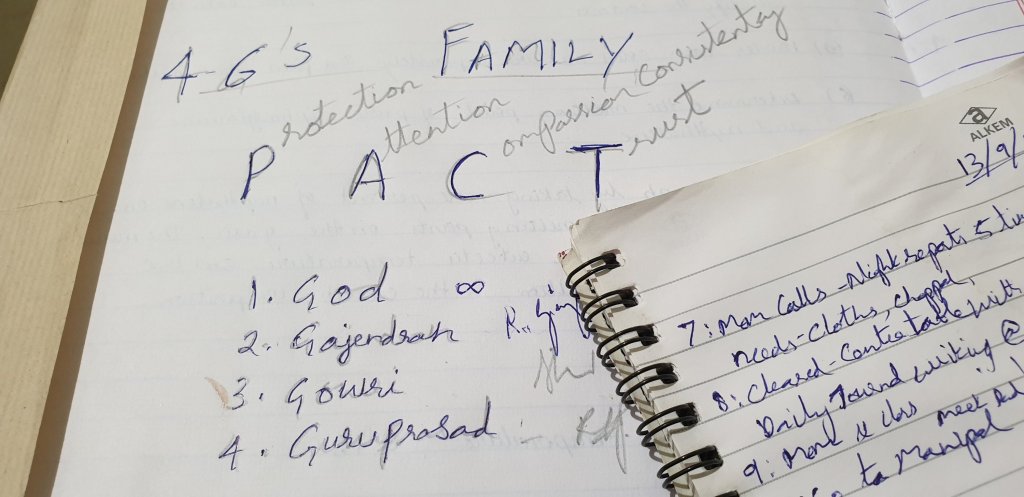 4 G's FAMILY
Protection Attention Compassion consistentcy Trust
P A C T
1. God ∞
2. Gajendrah
3. Gowri
4. Guruprasad
ALKEM
13/9/
7: Mom Calls - Night repats 5
needs - Cloths, chappal,
8: Cleared - Contestable with
Daily Journd writing @
9. Mom meet
to Manipal